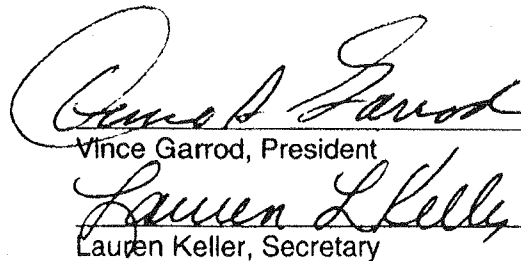 Garrod
Vince Garrod, President
Lauren L Keller
Lauren Keller, Secretary